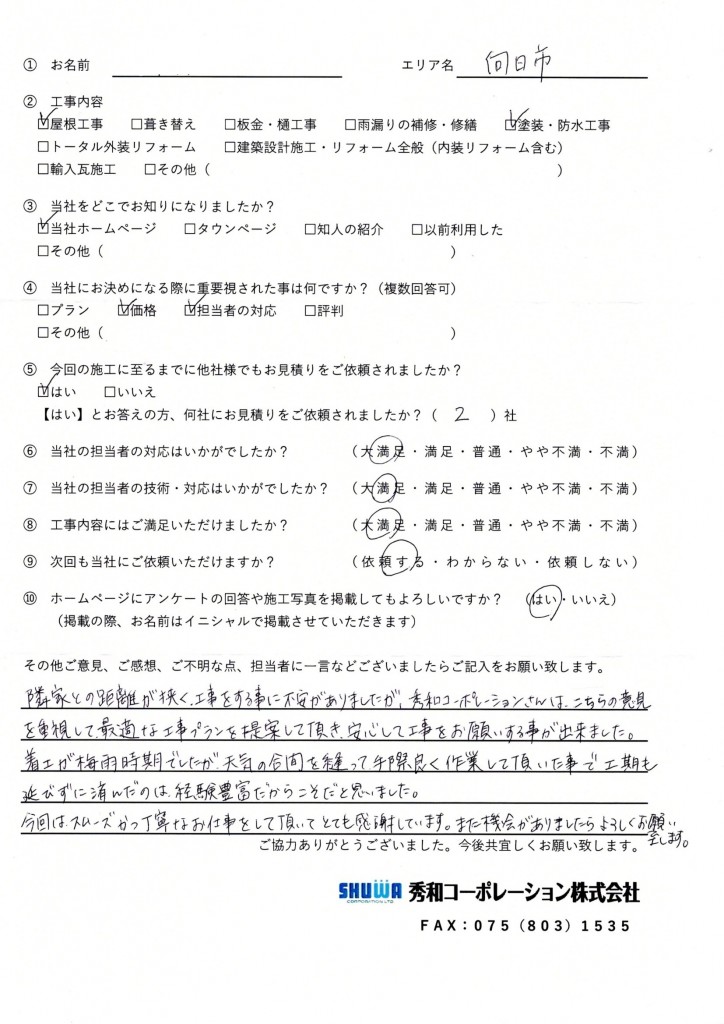 ① お名前 エリア名 向日市
② 工事内容
☑屋根工事 □葺き替え □板金・樋工事 □雨漏りの補修・修繕 ☑塗装・防水工事
□トータル外装リフォーム □建築設計施工・リフォーム全般（内装リフォーム含む）
□輸入瓦施工 □その他（ ）
③ 当社をどこでお知りになりましたか？
☑当社ホームページ □タウンページ □知人の紹介 □以前利用した
□その他（ ）
④ 当社にお決めになる際に重要視された事は何ですか？（複数回答可）
□プラン ☑価格 ☑担当者の対応 □評判
□その他（ ）
⑤ 今回の施工に至るまでに他社様でもお見積りをご依頼されましたか？
☑はい □いいえ
【はい】とお答えの方、何社にお見積りをご依頼されましたか？（ 2 ）社
⑥ 当社の担当者の対応はいかがでしたか？ （大満足・満足・普通・やや不満・不満）
⑦ 当社の担当者の技術・対応はいかがでしたか？ （大満足・満足・普通・やや不満・不満）
⑧ 工事内容にはご満足いただけましたか？ （大満足・満足・普通・やや不満・不満）
⑨ 次回も当社にご依頼いただけますか？ （依頼する・わからない・依頼しない）
⑩ ホームページにアンケートの回答や施工写真を掲載してもよろしいですか？ （はい・いいえ）
（掲載の際、お名前はイニシャルで掲載させていただきます）
その他ご意見、ご感想、ご不明な点、担当者に一言などございましたらご記入をお願い致します。
隣家との距離が狭く、工事をする事に不安がありましたが、秀和コーポレーションさんは、こちらの意見
を重視して最適な工事プランを提案して頂き、安心して工事をお願いする事が出来ました。
着工が梅雨時期でしたが、天気の合間を縫って手際良く作業して頂いた事で工期も
延びずに済んだのは、経験豊富だからこそだと思いました。
今回は、スムーズかつ丁寧なお仕事をして頂いてとても感謝しています。また機会がありましたらよろしくお願い
致します。
ご協力ありがとうございました。今後共宜しくお願い致します。
SHUWA CORPORATION LTD. 秀和コーポレーション株式会社
FAX：075（803）1535